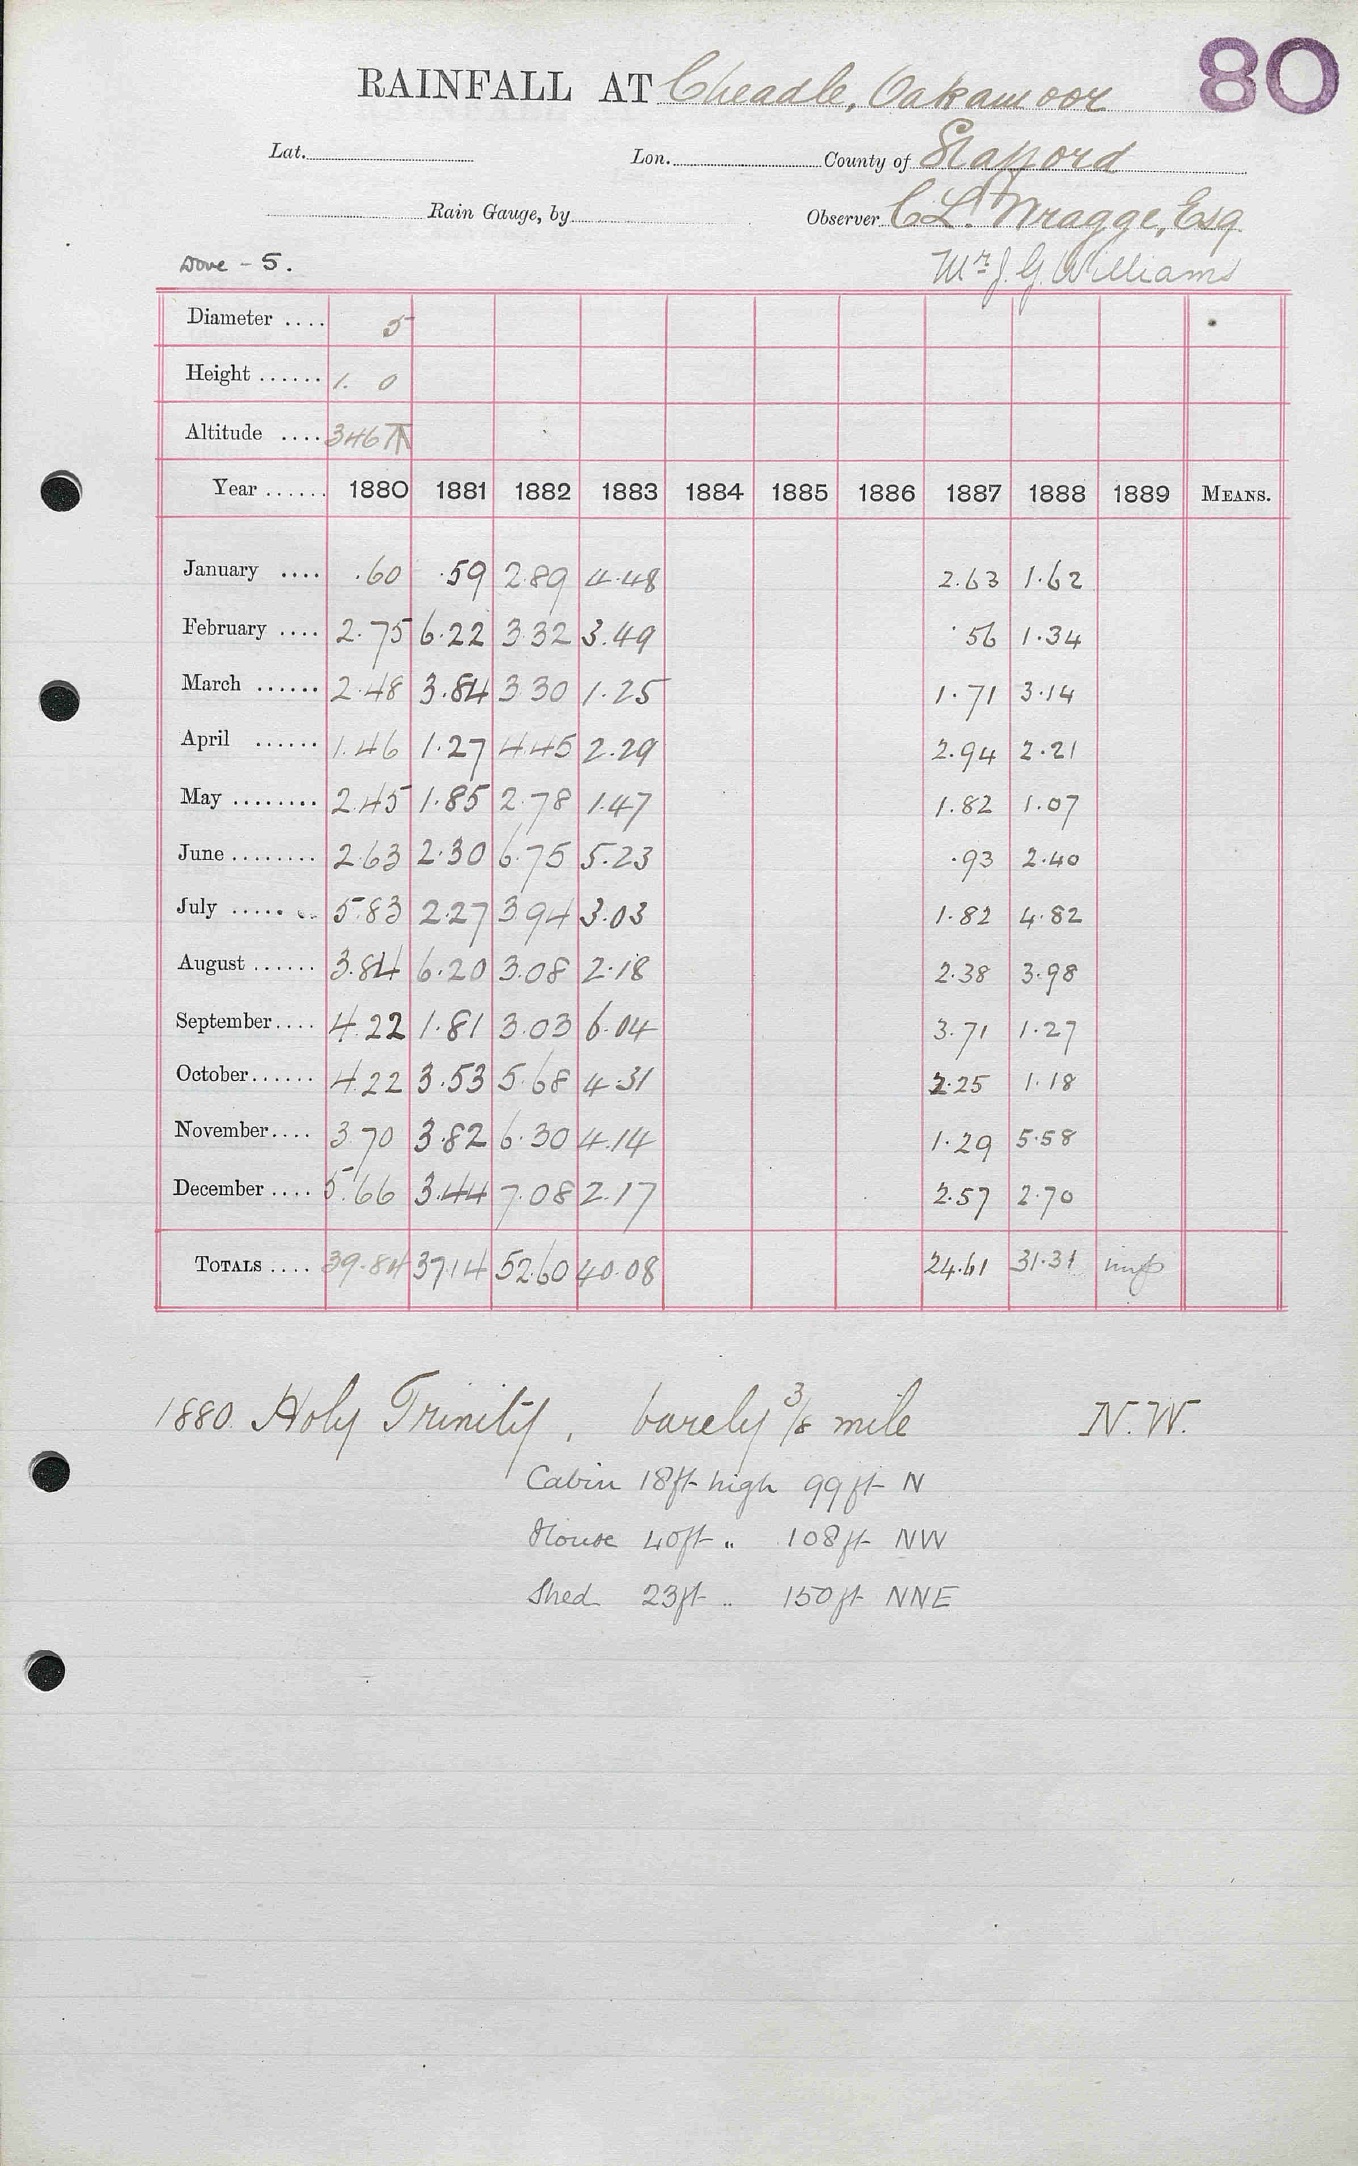 80
RAINFALL AT Cheadle, Oakamoor
Lat. Lon. County of Stafford
Rain Gauge, by Observer C L. Wragge, Esq
Dove - 5. Mr J. G. Williams
Diameter .... 5
Height ...... 1. 0
Altitude .... 346
Year ...... 1880 1881 1882 1883 1884 1885 1886 1887 1888 1889 MEANS.
January .... .60 .59 2.89 4.48 2.63 1.62
February .... 2.75 6.22 3.32 3.49 .56 1.34
March ...... 2.48 3.84 3.30 1.25 1.71 3.14
April ...... 1.46 1.27 4.45 2.29 2.94 2.21
May ........ 2.45 1.85 2.78 1.47 1.82 1.07
June ........ 2.63 2.30 6.75 5.23 .93 2.40
July ..... .. 5.83 2.27 3.94 3.03 1.82 4.82
August ...... 3.84 6.20 3.08 2.18 2.38 3.98
September.... 4.22 1.81 3.03 6.04 3.71 1.27
October...... 4.22 3.53 5.68 4.31 2.25 1.18
November.... 3.70 3.82 6.30 4.14 1.29 5.58
December .... 5.66 3.44 7.08 2.17 2.57 2.70
TOTALS .... 39.84 37.14 52.60 40.08 24.61 31.31
1880. Holy Trinity, barely 3/8 mile N.W.
Cabin 18ft high 99ft N
House 40ft " 108ft NW
Shed 23ft " 150ft NNE